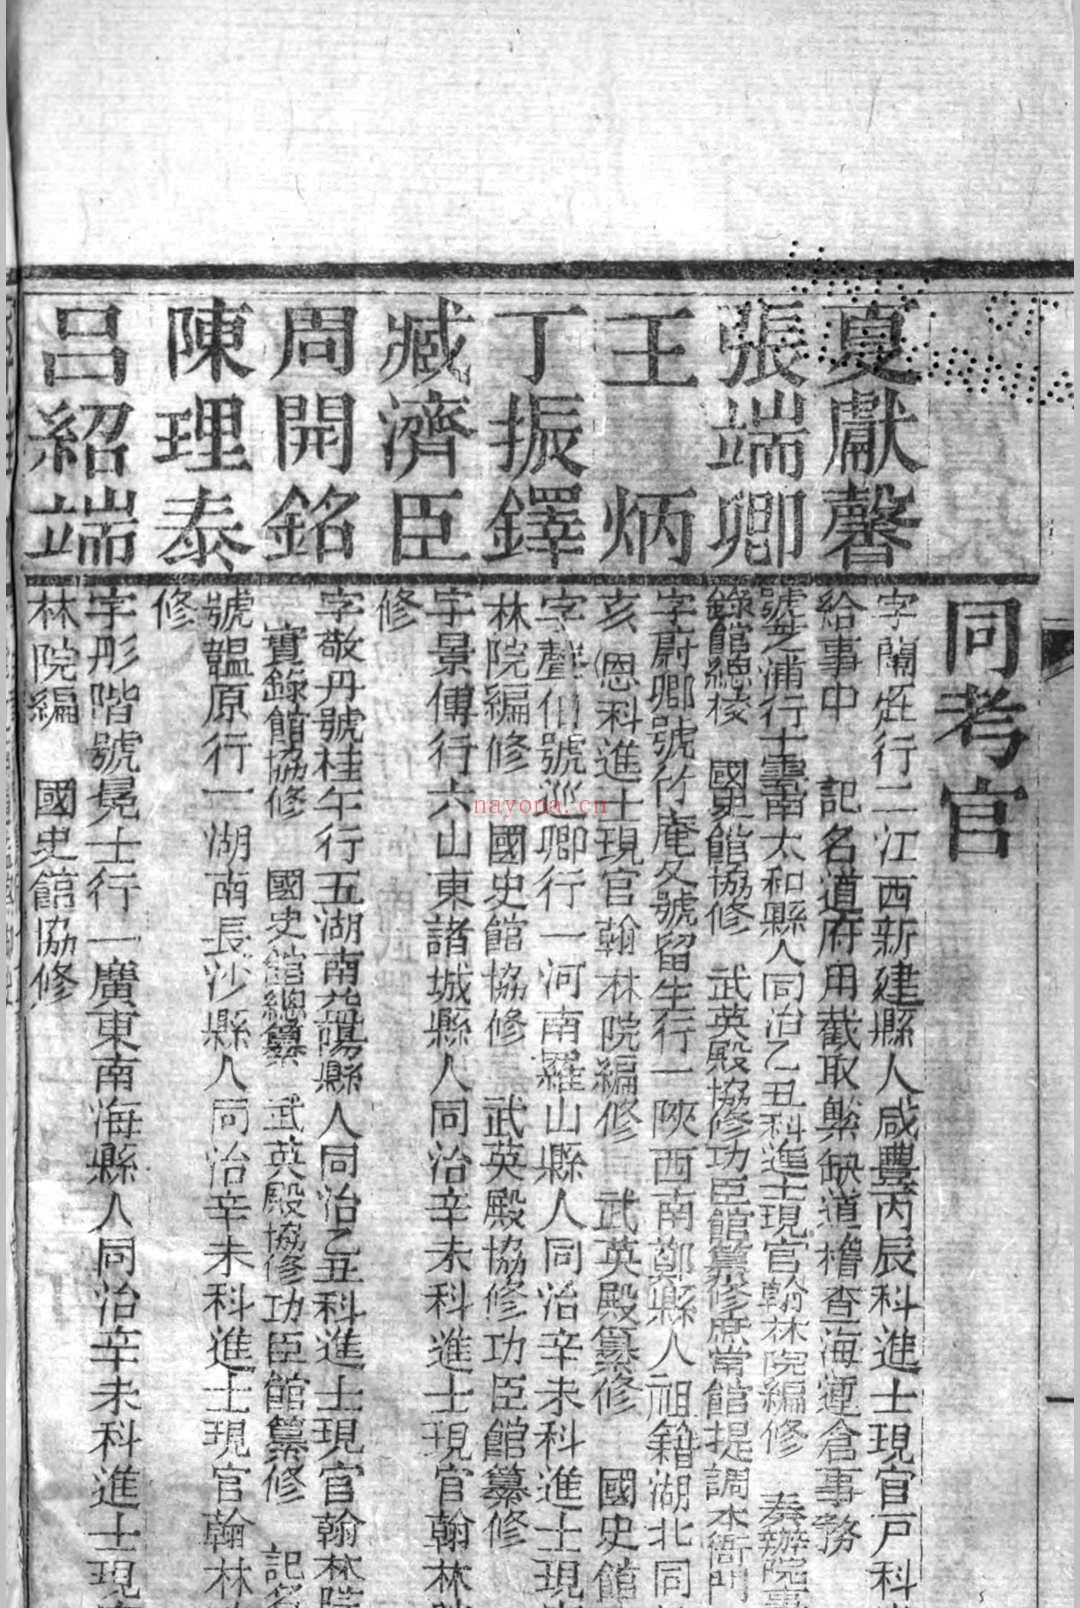 同考官
夏獻馨
字蘭 行二江西新建縣人咸豐丙辰科進士現官戶科
給事中 記名道府用截取繁缺道稽查海運倉事務
張端卿
號芝浦行十雲南太和縣人同治乙丑科進士現官翰林院編修 奏辦院事
錄館總校 國史館協修 武英殿協修功臣館纂修庶常館提調本衙門
王炳
字蔚卿號竹庵又號留生行一陝西南鄭縣人祖籍湖北同
亥 恩科進士現官翰林院編修 武英殿纂修 國史館
丁振鐸
字聲伯號巡卿行一河南羅山縣人同治辛未科進士現
林院編修 國史館協修 武英殿協修功臣館纂修
臧濟臣
字景傅行六山東諸城縣人同治辛未科進士現官翰林
修
周開銘
字敬丹號桂午行五湖南益陽縣人同治乙丑科進士現官翰林院
實錄館協修 國史館總纂 武英殿協修功臣館纂修 記名
陳理泰
號韞原行一湖南長沙縣人同治辛未科進士現官翰林
修
呂紹端
字彤階號冕士行一廣東南海縣人同治辛未科進士現
林院編 國史館協修
nayona.cn